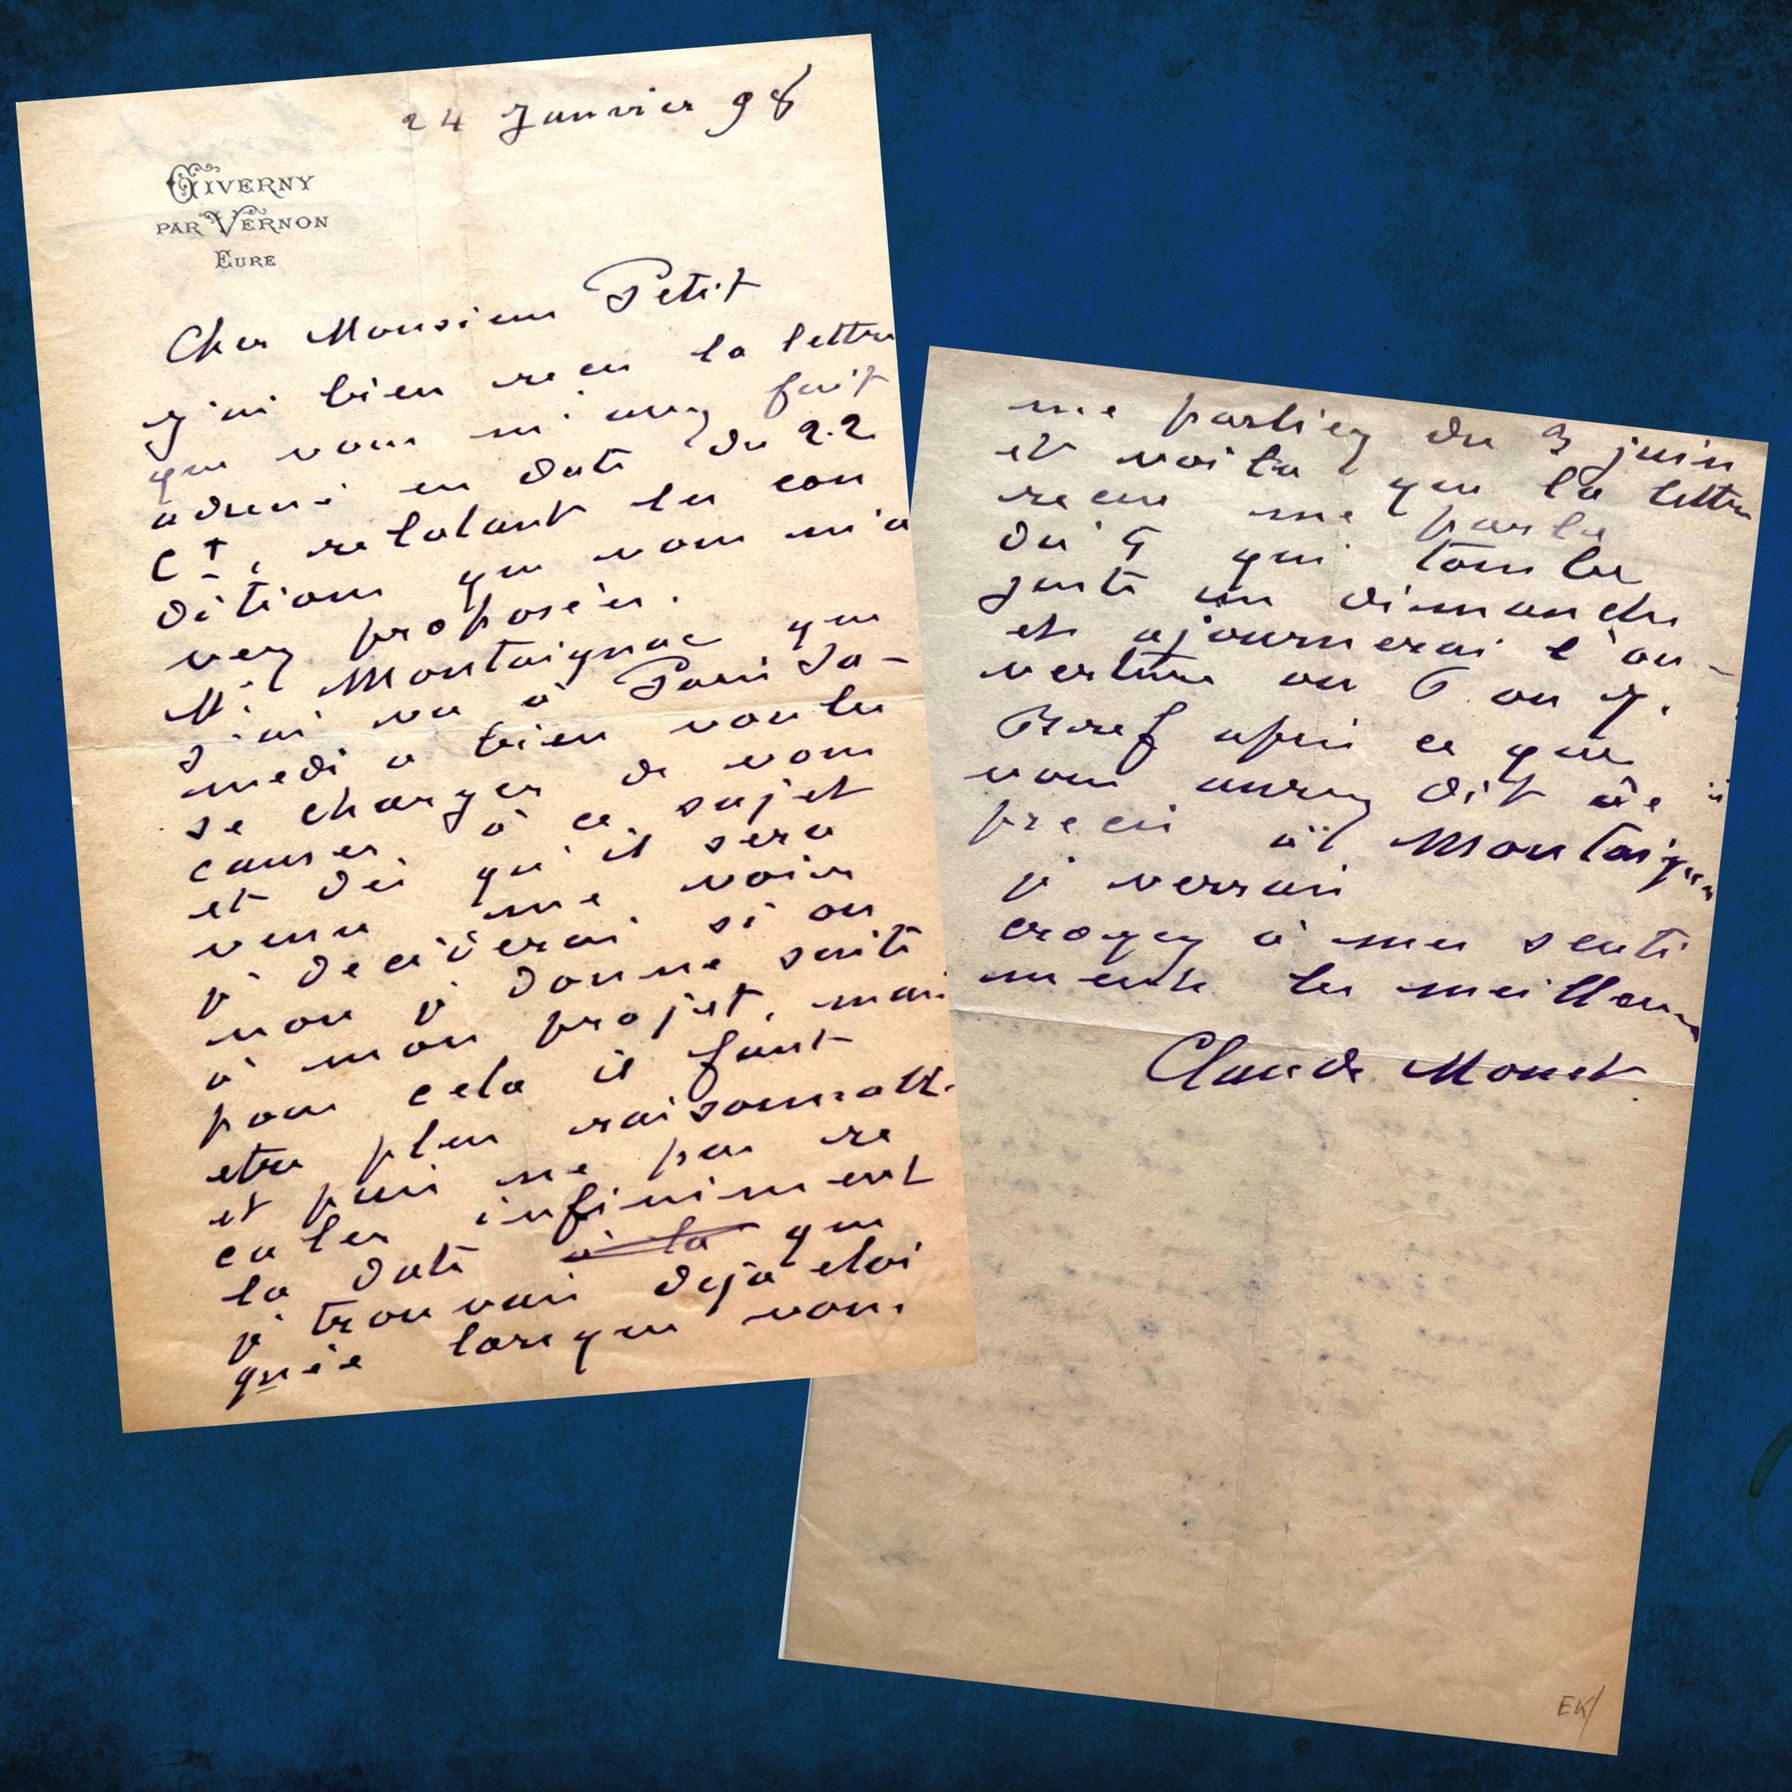 24 Janvier 98
GIVERNY
PAR VERNON
EURE
Cher Monsieur Petit
J'ai bien recu la lettre
que vous m'avez fait
adressé en date du 22
ct, relatant les con
ditions que vous m'a
vez proposées.
Mr Montaignac que
j'ai vu à Paris Sa-
medi a bien voulu
se charger de vous
causer à ce sujet
et dès qu'il sera
venu me voir
je deciderai si ou
non je donne suite
à mon projet, mais
pour cela il faut
etre plus raisonnable
et puis ne pas re
culer infiniment
la date à la que
je trouvais deja eloi
gnée lorsque vous
me parliez du 3 juin
et voila que la lettre
recue me parle
du 5 qui tombe
juste un dimanche
et ajournerai l'ou-
verture au 6 ou 7.
Bref après ce que
vous aurez dit de
precis à Montaignac
je verrai
croyez à mes senti
ments les meilleurs
Claude Monet
EK/